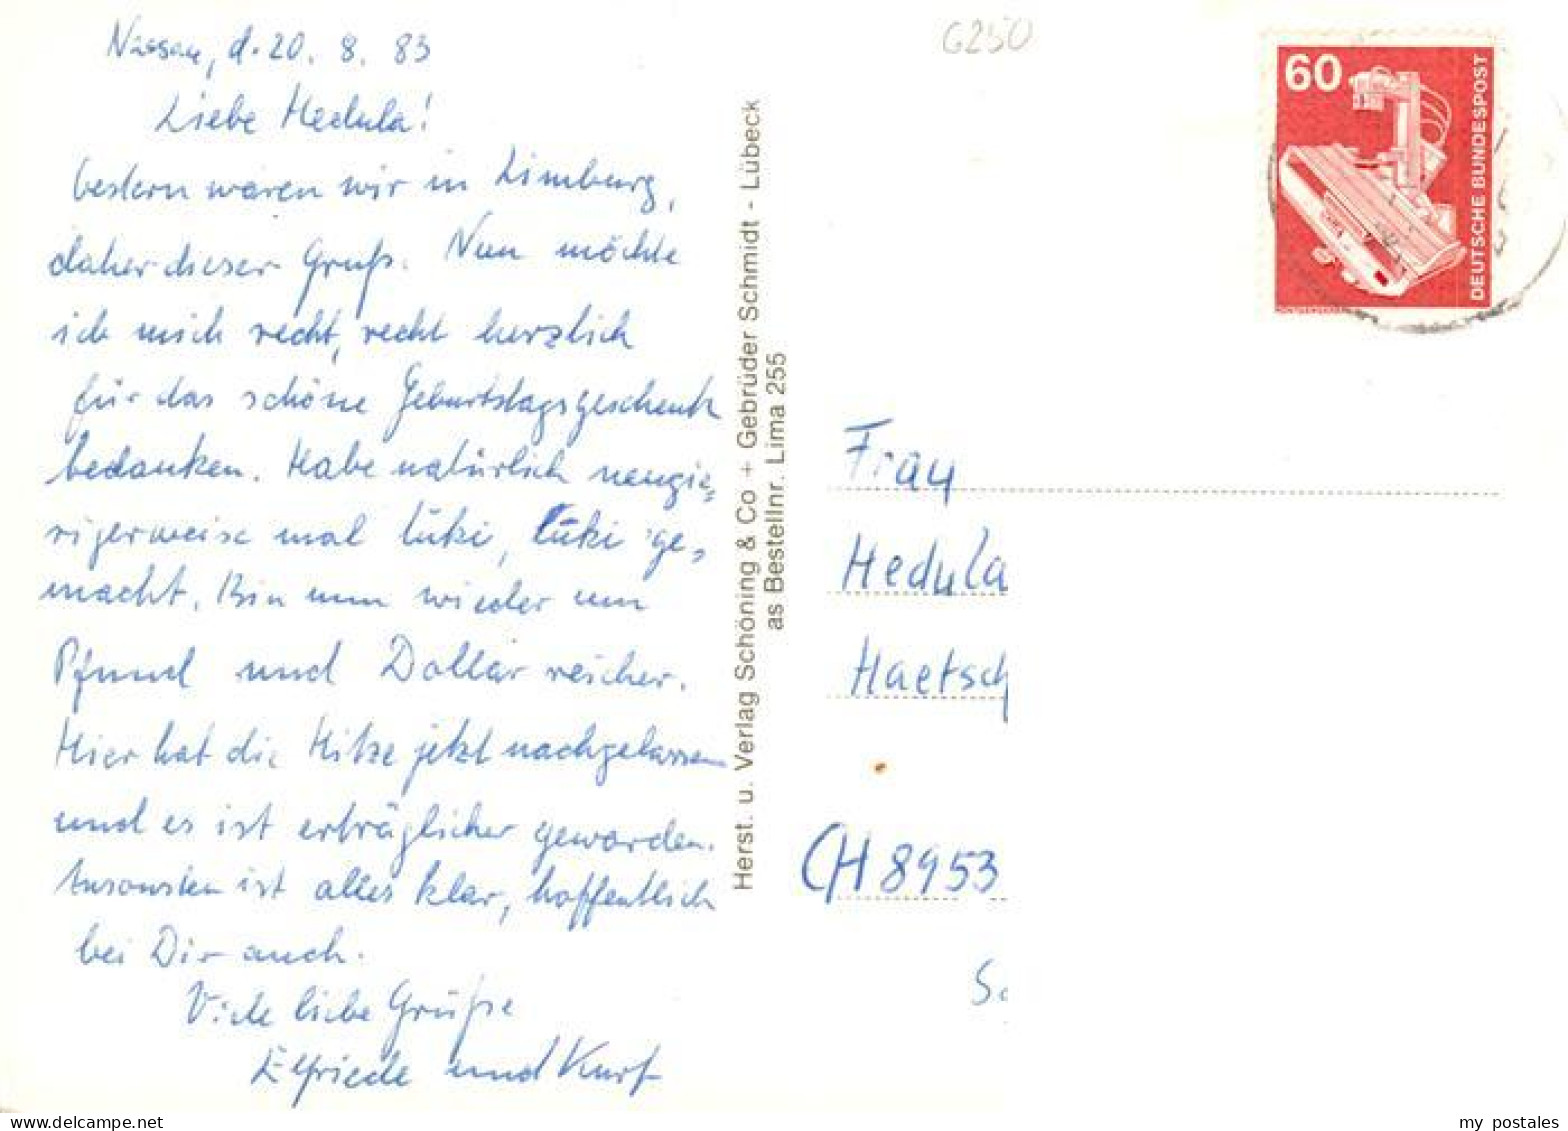 Nassau, d. 20. 8. 83
Liebe Hedula!
Gestern waren wir in Limburg,
daher dieser Gruß. Nun möchte
ich mich recht, recht herzlich
für das schöne Geburtstagsgeschenk
bedanken. Habe natürlich neugie-
rigerweise mal lüki, lüki ge-
macht. Bin nun wieder um
Pfund und Dollar reicher.
Hier hat die Hitze jetzt nachgelassen
und es ist erträglicher geworden.
Ansonsten ist alles klar, hoffentlich
bei Dir auch.
Viele liebe Grüße
Elfriede und Kurt
Herst. u. Verlag Schöning & Co + Gebrüder Schmidt - Lübeck
as Bestellnr. Lima 255
6250
60
DEUTSCHE BUNDESPOST
Frau
Hedula
Haetsch
CH 8953
my postales